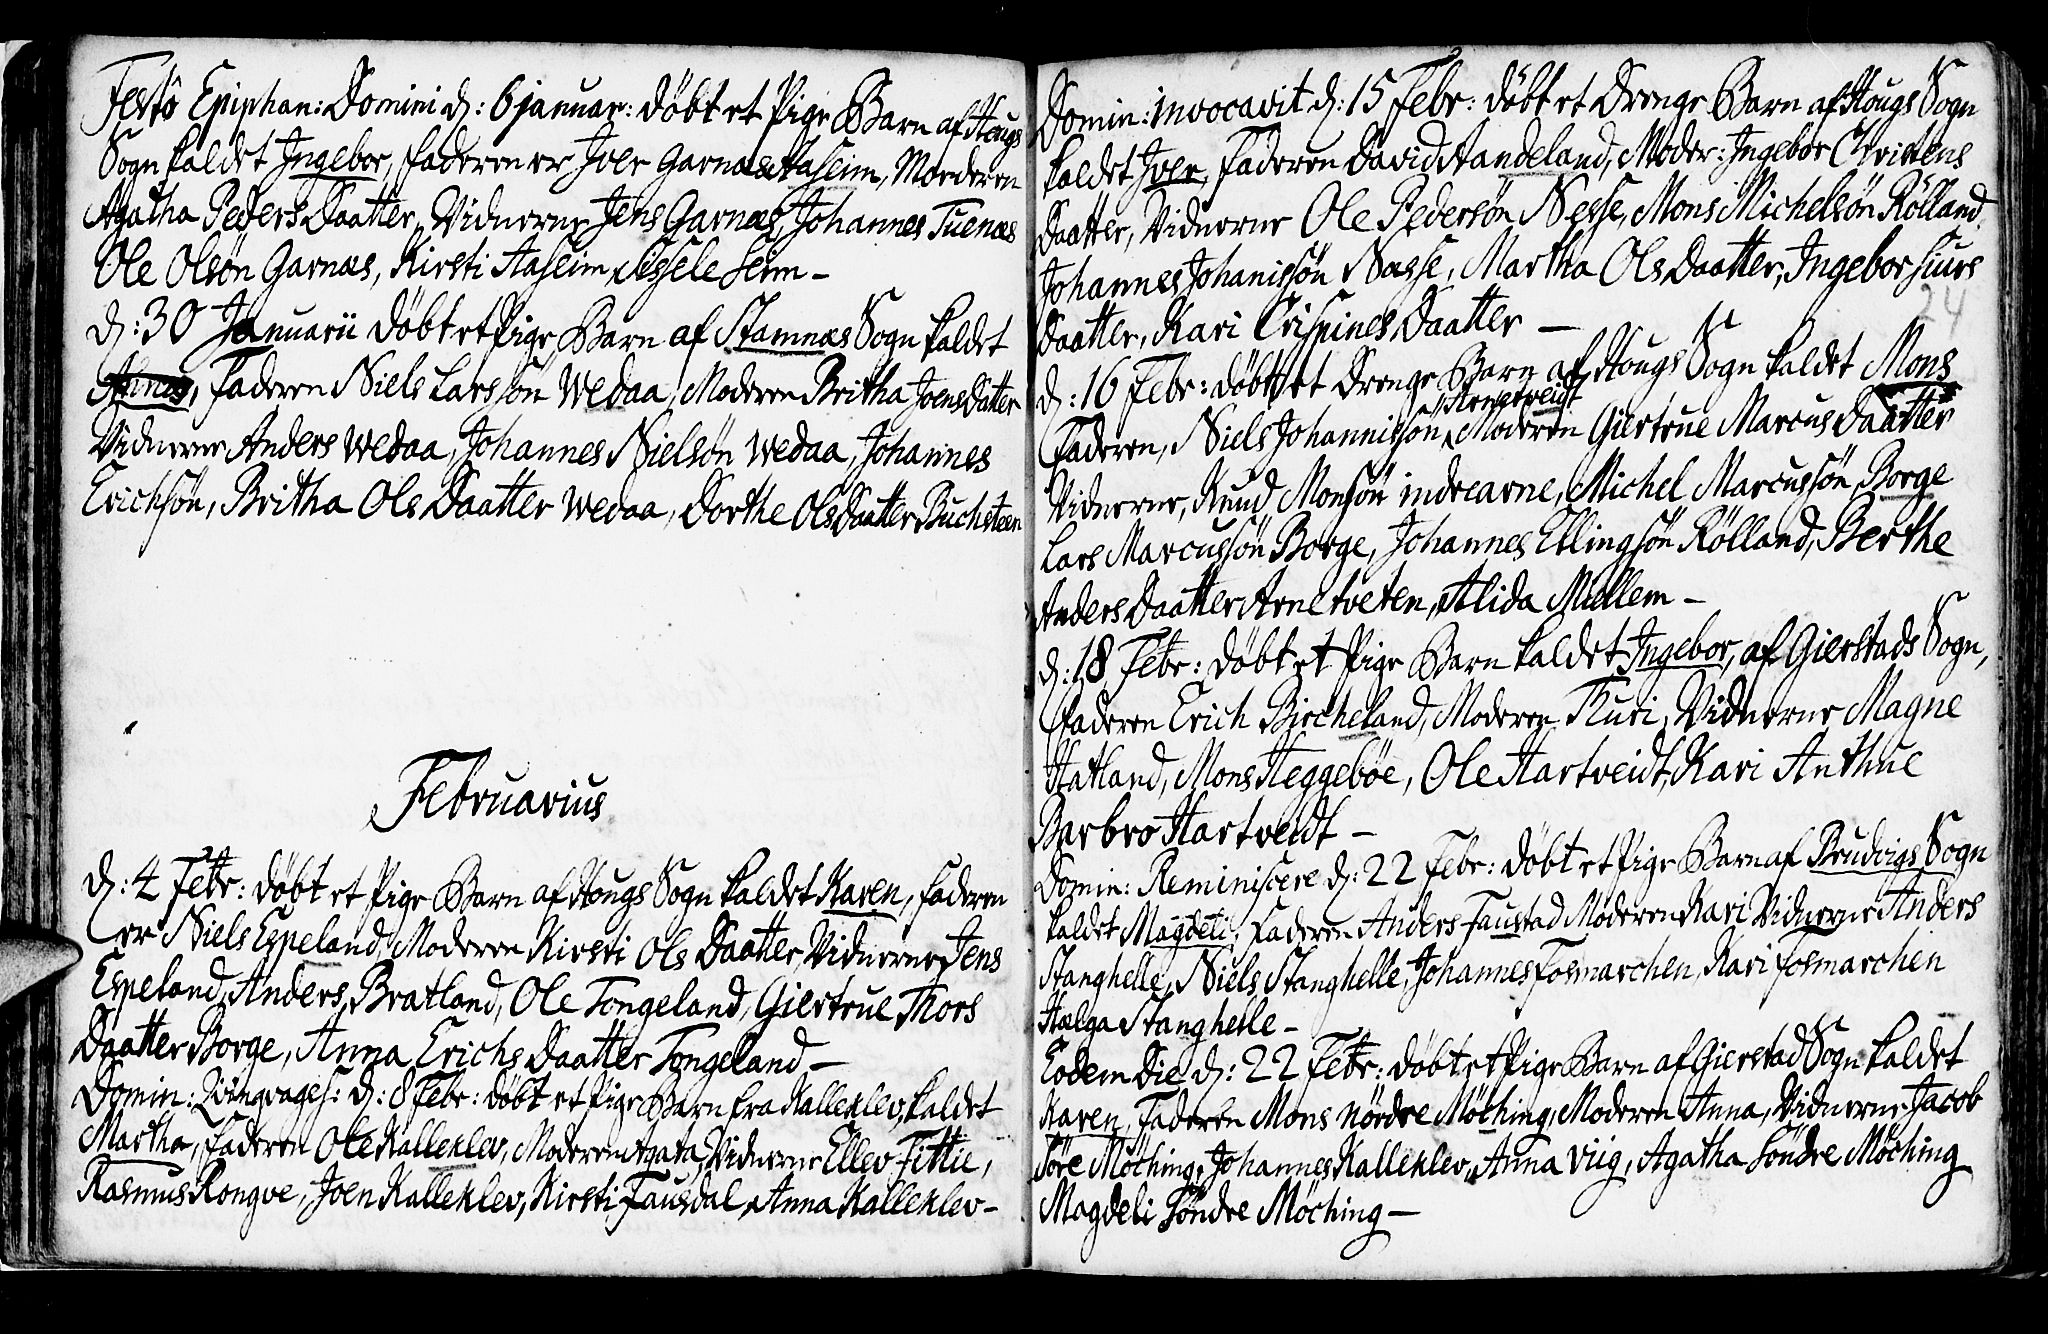 Festô Epiphan: Domini d: 6 januar: döbt et Pige Barn af Hougs
Sogn kaldet Ingebor, faderen er Jver Garnæs Haseim, Moederen
Agatha Peders Daatter, Vidnerne Jens Garnæs, Johannes Tuenæs
Ole Olsön Garnæs, Kirsti Haseim, Sissele Seim –
d: 30 Januarii döbt et Pige Barn af Stamnæs Sogn kaldet
Anna, Faderen Niels Larssön Wedaa, Moderen Britha JoensDatter
Vidnerne Anders Wedaa, Johannes Nielsön Wedaa, Johannes
Erichsön, Britha Ols Daatter Wedaa, Dorthe OlsDaatter Buchsteen
Februarius
d: 4 Febr: döbt et Pige Barn af Hougs Sogn kaldet Karen, faderen
er Niels Espeland, Moderen Kirsti Ols Daatter, Vidnerne Jens
Espeland, Anders Bratland, Ole Tongeland, Giertrue Thors
Daatter Borge, Anna Erichs Daatter Tongeland –
Domin: Qvinqvages: d: 8 Febr: döbt et Pige Barn fra Kalleklev, kaldet
Martha, faderen Ole Kalleklev, Moderen Agata, Vidnerne Ellev Fittie,
Rasmus Rongve, Joen Kalleklev, Kirsti Fausdal, Anna Kalleklev –
Domin: invocavit d: 15 Febr: döbt et Drenge Barn af Hougs Sogn
kaldet Jver, Faderen David Aandeland, Moder: Ingebor Christens
Daatter, Vidnerne Ole Pedersön Nesse, Mons Michelsön Rölland,
Johannes Johanissön Næsse, Martha Ols Daatter, Ingebor Siurs
24
Daatter, Kari Crispines Daatter –
d: 16 Febr: döbt et Drenge Barn af Hougs Sogn kaldet Mons
Arnetveidt
Faderen, Niels Johannissön, Moderen Giertrue Marcus Daatter
Vidnerne, Knud Monsön indrearne, Michel Marcussön Borge
Lars Marcussön Borge, Johannes Ellingsön Rölland, Berthe
Anders Daatter Arnetveten, Alida Mellem –
d: 18 Febr: döbt et Pige Barn kaldet Ingebor, af Gierstads Sogn,
faderen Erich Bircheland, Moderen Thuri, Vidnerne Magne
Hatland, Mons Heggeböe, Ole Hartveidt, Kari Anthue
Barbro Hartveidt –
Domin: Reminiscere d: 22 Febr: döbt et Pige Barn af Brudvigs Sogn
kaldet Magdeli, Faderen Anders Faustad Moderen Kari Vidnerne Anders
Stanghelle, Niels Stanghelle, Johannes Fosmarchen, Kari Fosmarchen
Hælga Stanghelle –
Eodem Die d: 22 Febr: döbt et Pige Barn af Gierstad Sogn kaldet
Karen, Faderen Mons Nördre Möching, Moderen Anna, Vidnerne Jacob
Söre Möching, Johannes Kalleklev, Anna Viig, Agatha Söndre Möching
Magdeli Söndre Möching –